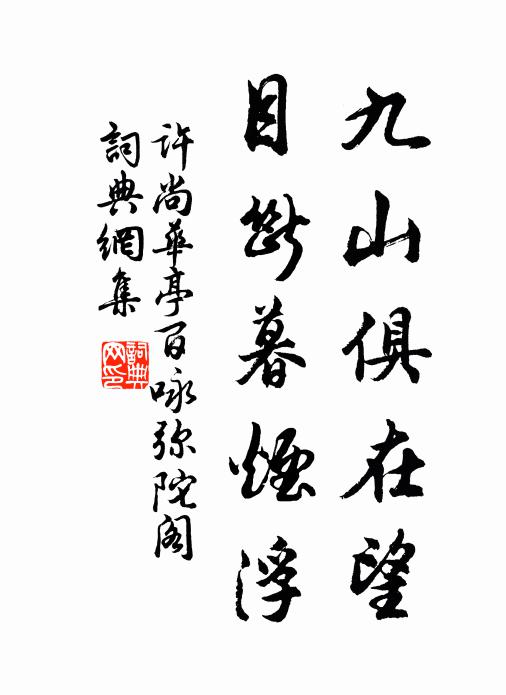 九山俱在望
目斷暮煙浮
許尚華亭百咏弥陀阁
詞典網集
詞典网印